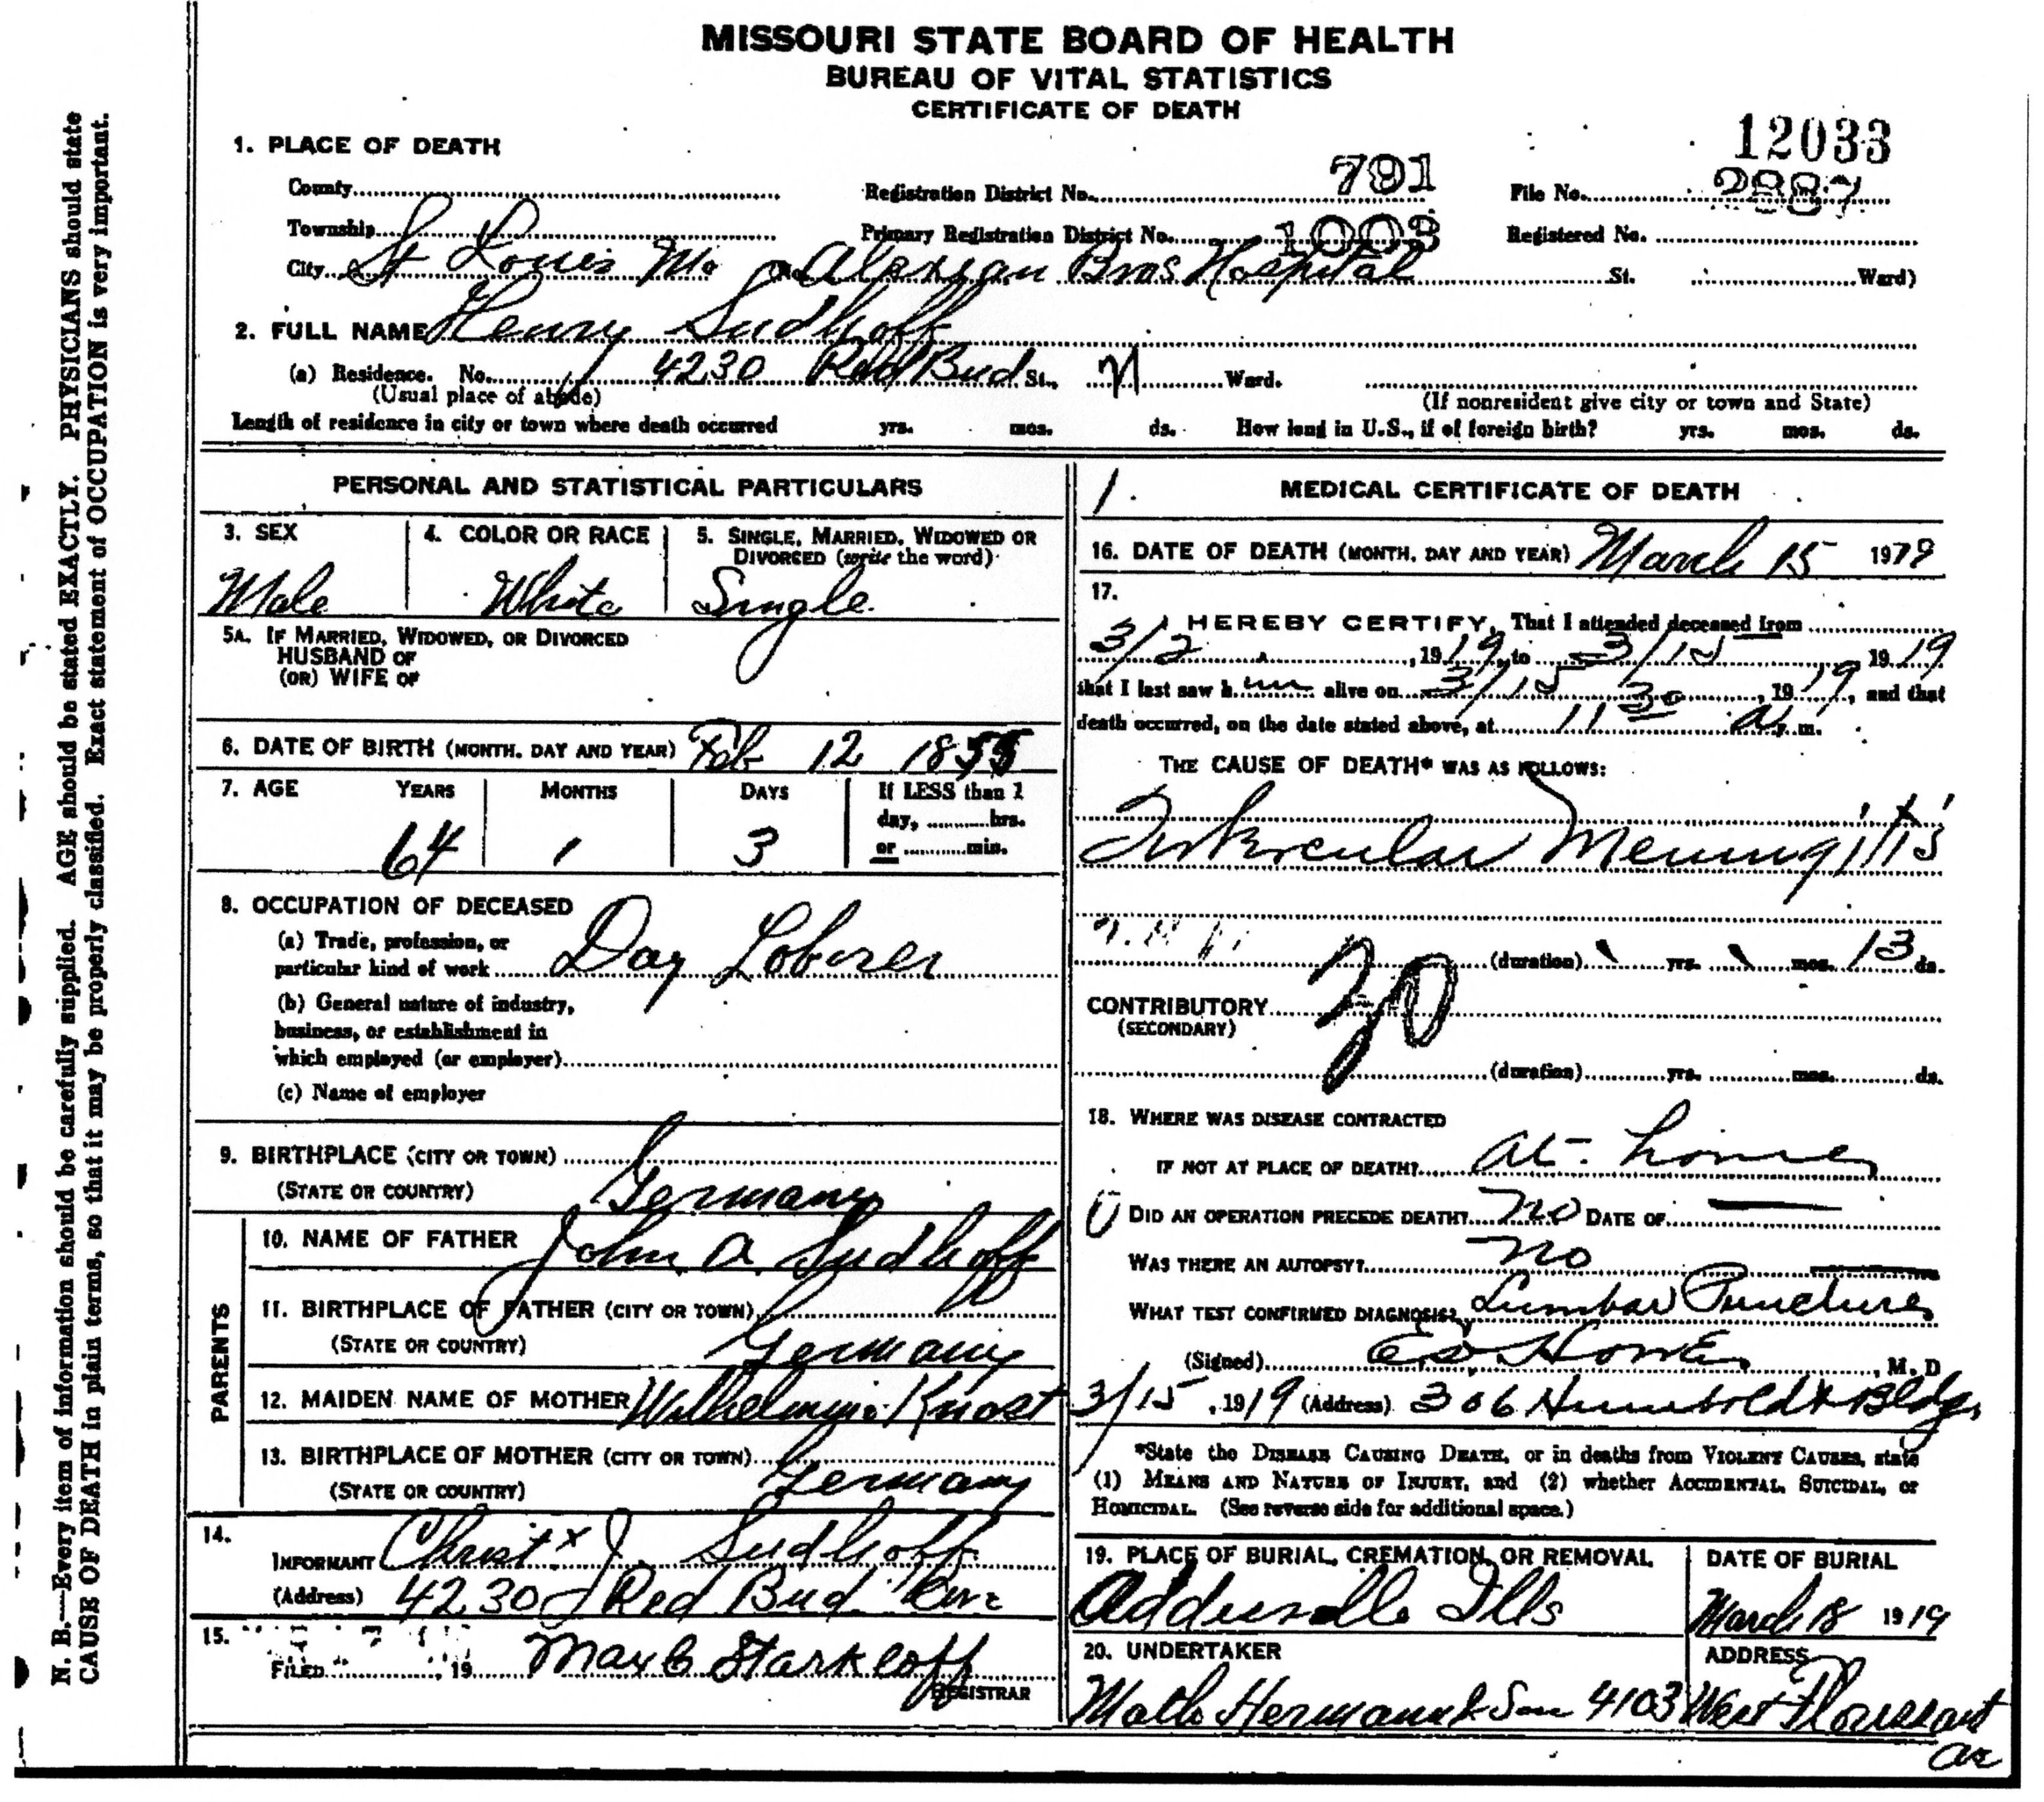 MISSOURI STATE BOARD OF HEALTH
BUREAU OF VITAL STATISTICS
CERTIFICATE OF DEATH
12033
1. PLACE OF DEATH
County
Registration District No. 791
File No. 2887
Township
Primary Registration District No. 1003
Registered No.
City St Louis Mo (No. Alexian Bros Hospital St. Ward)
2. FULL NAME Henry Sudhoff
(a) Residence. No. 4230 Red Bud St., Ward.
(Usual place of abode)
(If nonresident give city or town and State)
Length of residence in city or town where death occurred yrs. mos. ds. How long in U.S., if of foreign birth? yrs. mos. ds.
PERSONAL AND STATISTICAL PARTICULARS
3. SEX
Male
4. COLOR OR RACE
White
5. SINGLE, MARRIED, WIDOWED OR
DIVORCED (write the word)
Single
5A. IF MARRIED, WIDOWED, OR DIVORCED
HUSBAND OF
(OR) WIFE OF
6. DATE OF BIRTH (MONTH, DAY AND YEAR) Feb 12 1855
7. AGE YEARS MONTHS DAYS If LESS than 1
day, hrs.
or min.
64 1 3
8. OCCUPATION OF DECEASED
(a) Trade, profession, or
particular kind of work Day Loborer
(b) General nature of industry,
business, or establishment in
which employed (or employer)
(c) Name of employer
9. BIRTHPLACE (CITY OR TOWN)
(STATE OR COUNTRY) Germany
PARENTS
10. NAME OF FATHER John A. Sudhoff
11. BIRTHPLACE OF FATHER (CITY OR TOWN)
(STATE OR COUNTRY) Germany
12. MAIDEN NAME OF MOTHER Wilhelmina Knost
13. BIRTHPLACE OF MOTHER (CITY OR TOWN)
(STATE OR COUNTRY) Germany
14.
INFORMANT Christ J. Sudhoff
(Address) 4230 Red Bud Ave
15.
FILED , 19 Max C Starkloff
REGISTRAR
1.
MEDICAL CERTIFICATE OF DEATH
16. DATE OF DEATH (MONTH, DAY AND YEAR) March 15 1919
17.
I HEREBY CERTIFY, That I attended deceased from
3/2, 1919, to 3/15 1919
that I last saw him alive on 3/15, 1919, and that
death occurred, on the date stated above, at 11 30 a. m.
THE CAUSE OF DEATH* WAS AS FOLLOWS:
Tubercular Meningitis
(duration) yrs. mos. 13 ds.
CONTRIBUTORY
(SECONDARY)
(duration) yrs. mos. ds.
18. WHERE WAS DISEASE CONTRACTED
IF NOT AT PLACE OF DEATH? at home
DID AN OPERATION PRECEDE DEATH? no DATE OF
WAS THERE AN AUTOPSY? no
WHAT TEST CONFIRMED DIAGNOSIS? Lumbar Puncture
(Signed) , M. D
3/15, 1919 (Address) 306 Humboldt Bldg.
*State the DISEASE CAUSING DEATH, or in deaths from VIOLENT CAUSES, state
(1) MEANS AND NATURE OF INJURY, and (2) whether ACCIDENTAL, SUICIDAL, or
HOMICIDAL. (See reverse side for additional space.)
19. PLACE OF BURIAL, CREMATION, OR REMOVAL
Addieville Ills
DATE OF BURIAL
March 18 1919
20. UNDERTAKER
Math Hermann & Son
ADDRESS
4103 West Florissant
av
N. B.—Every item of information should be carefully supplied. AGE should be stated EXACTLY. PHYSICIANS should state
CAUSE OF DEATH in plain terms, so that it may be properly classified. Exact statement of OCCUPATION is very important.